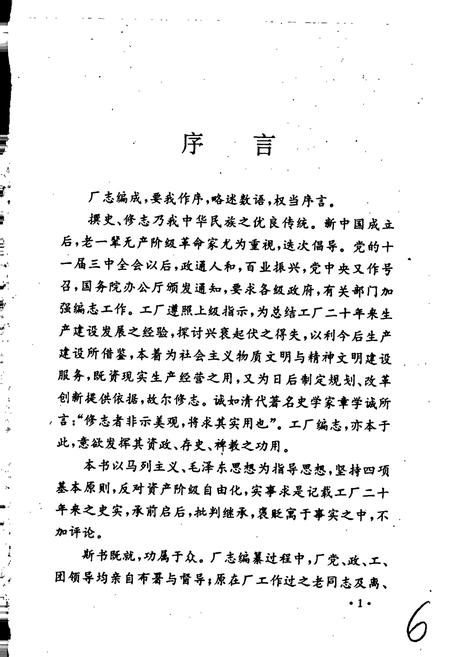 序 言
厂志编成，要我作序，略述数语，权当序言。
撰史、修志乃我中华民族之优良传统。新中国成立
后，老一辈无产阶级革命家尤为重视，迭次倡导。党的十
一届三中全会以后，政通人和，百业振兴，党中央又作号
召，国务院办公厅颁发通知，要求各级政府，有关部门加
强编志工作。工厂遵照上级指示，为总结工厂二十年来生
产建设发展之经验，探讨兴衰起伏之得失，以利今后生产
建设所借鉴，本着为社会主义物质文明与精神文明建设
服务，既资现实生产经营之用，又为日后制定规划、改革
创新提供依据，故尔修志。诚如清代著名史学家章学诚所
言：“修志者非示美观，将求其实用也”。工厂编志，亦本于
此，意欲发挥其资政、存史、裨教之功用。
本书以马列主义、毛泽东思想为指导思想，坚持四项
基本原则，反对资产阶级自由化，实事求是记载工厂二十
年来之史实，承前启后，批判继承，褒贬寓于事实之中，不
加评论。
斯书既就，功属于众。厂志编纂过程中，厂党、政、工、
团领导均亲自布署与督导；原在厂工作过之老同志及离、
·1·
6